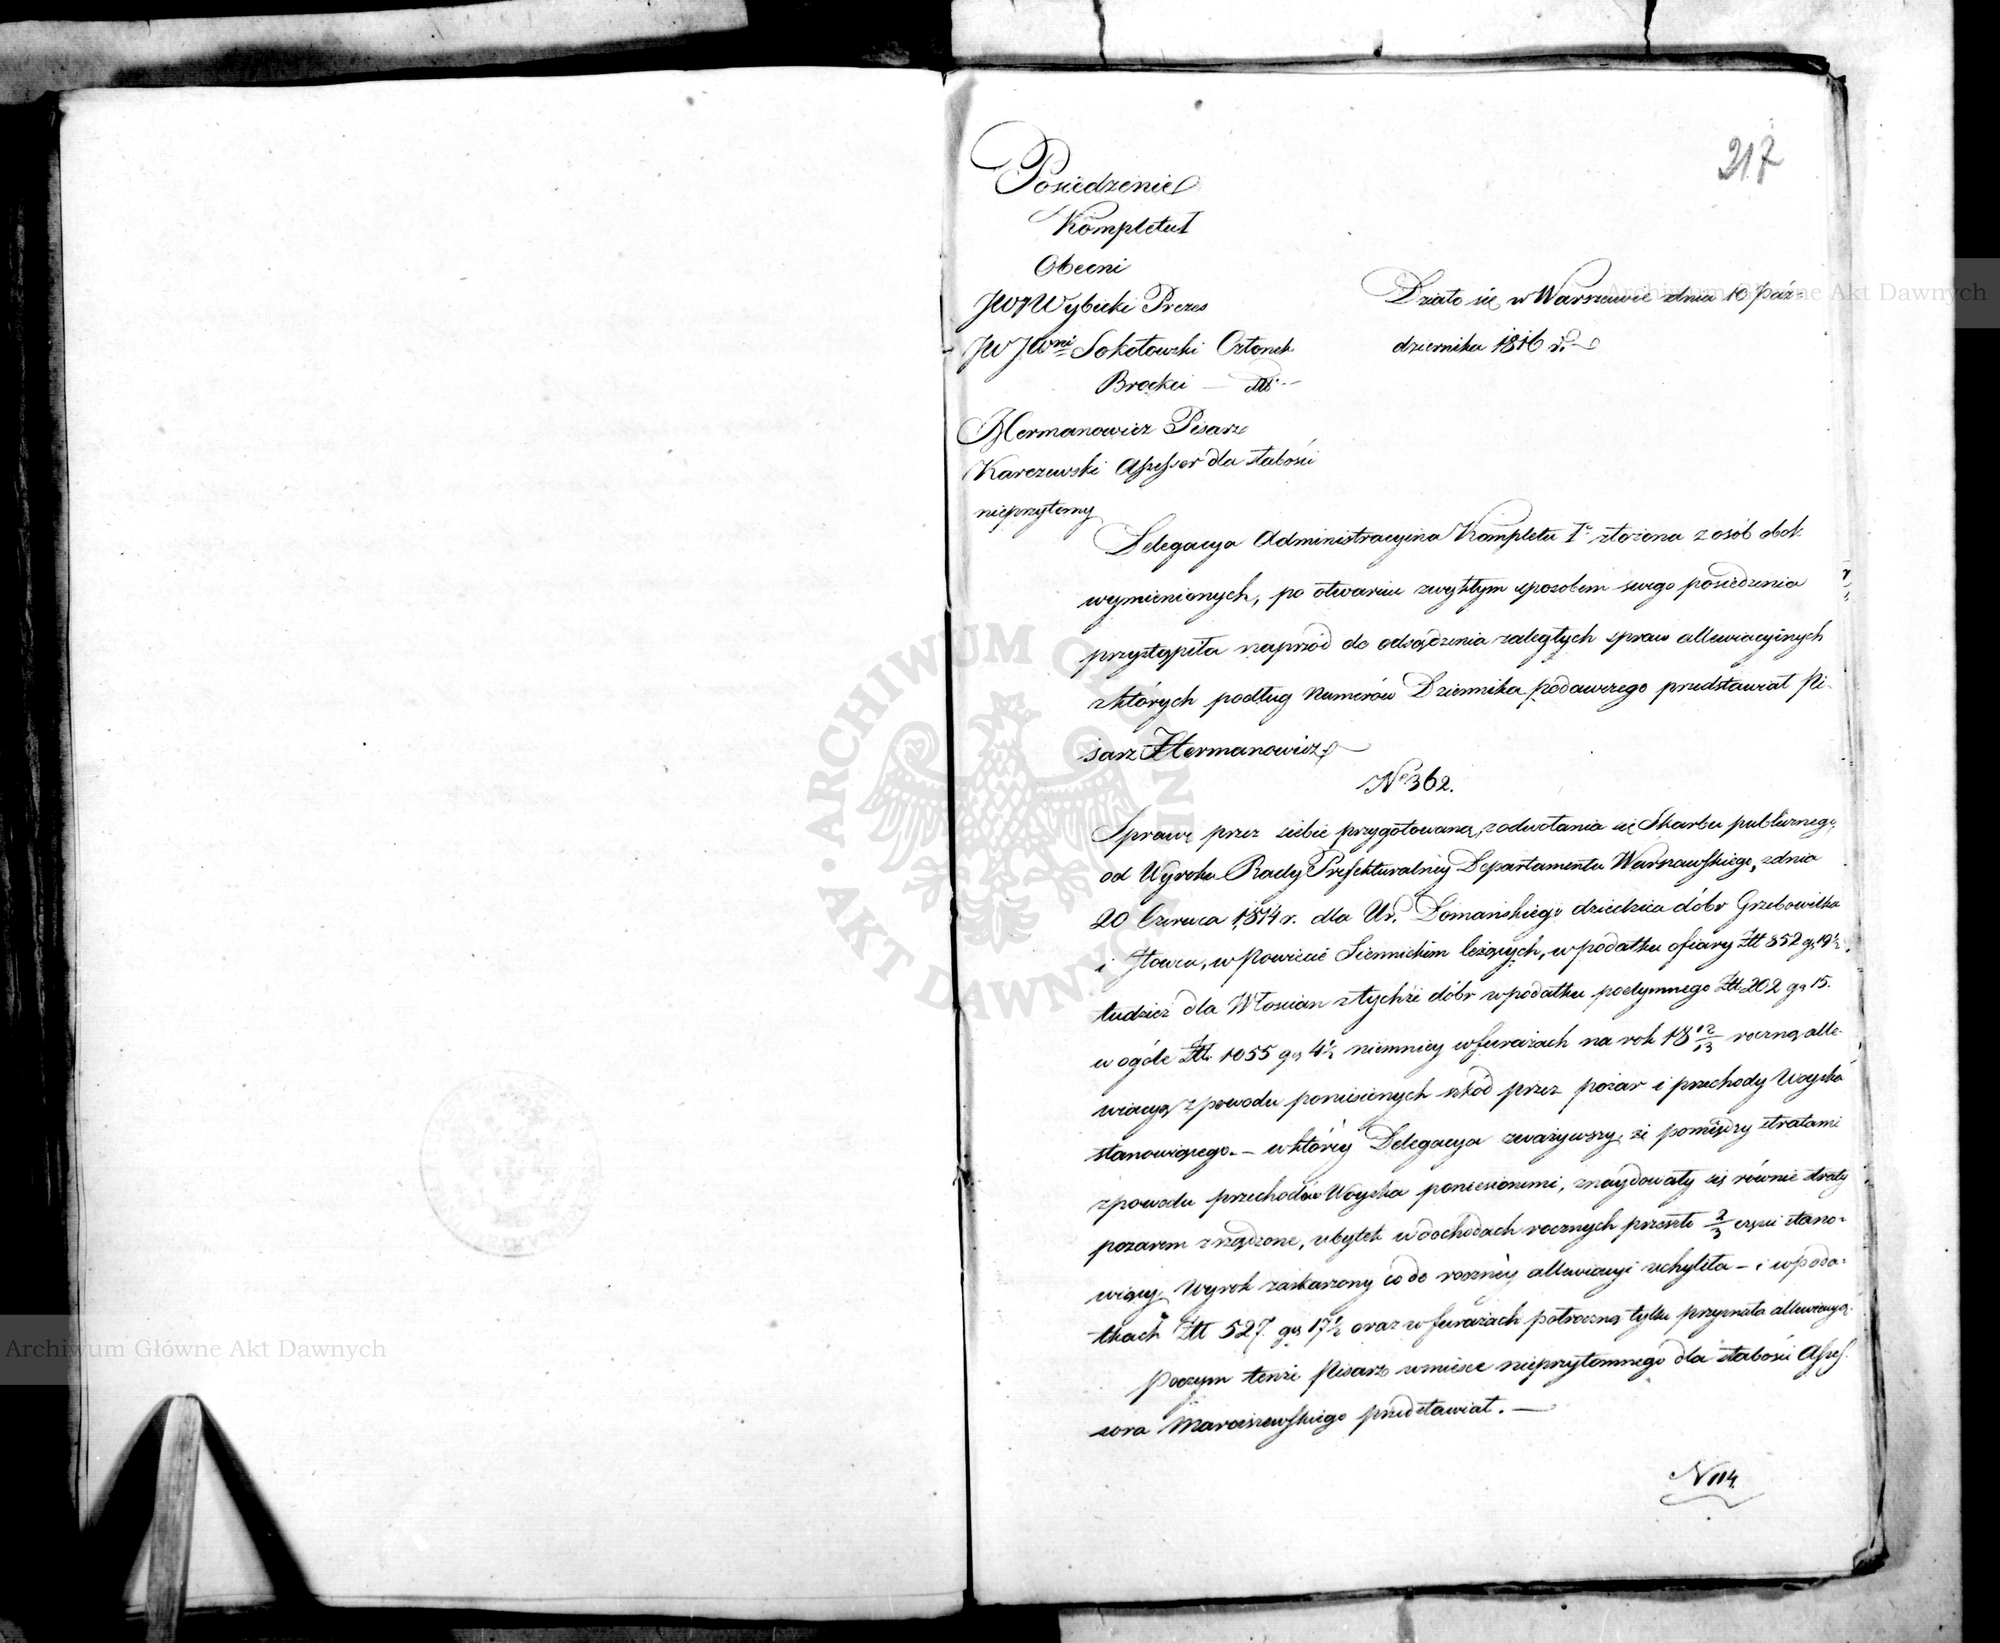 217
Posiedzenie
Kompletu I
Obecni
JW Wybicki Prezes
JW JWni Sokołowski Członek
Brocki — dtto
Hermanowicz Pisarz
Karczewski Assessor dla słabości
nieprzytomy
Działo się w Warszawie dnia 10 Paź-
dziernika 1816 r.
Delegacya Administracyina Kompletu Iº złożona z osób obok
wymienionych, po otwarciu zwykłym sposobem swego posiedzenia
przystąpiła naprzód do odsądzenia zaległych spraw allewiacyinych
z których podług Numerów Dziennika podawczego przedstawiał Pi-
sarz Hermanowicz
Nº 362.
Sprawę przez siebie przygotowaną, z odwołania się Skarbu publicznego,
od Wyroku Rady Prefekturalney Departamentu Warszawskiego, z dnia
20 Czerwca 1814 r. dla Ur. Domańskiego dziedzica dóbr Grzebowilka
i Iłowca, w Powiecie Siennickim leżących, w podatku ofiary Złł 852 gs 19½
tudzież dla Włościan z tychże dóbr w podatku podymnego Złł 202 gs 15.
w ogóle Złł. 1055 gs 4½ niemniey w furażach na rok 18 12/13 roczną alle-
wiacyą z powodu poniesionych szkód przez pożar i przechody Woyska
stanowiącego. — w którey Delegacya zważywszy, że pomiędzy stratami
z powodu przechodów Woyska poniesionemi, znaydowały się równie straty
pożarem zrządzone, ubytek w dochodach rocznych przeszło 2/3 części stano-
wiący, Wyrok zaskarżony co do roczney allewiacyi uchyliła — i w poda-
tkach Złł 527. gs 17½ oraz w furażach półroczną tylko przyznała allewiacyą.
Poczym tenże Pisarz w miesce nieprzytomnego dla słabości Asses-
sora Marciszewskiego przedstawiał. —
N 114.
Archiwum Główne Akt Dawnych
Archiwum Główne Akt Dawnych
ARCHIWUM GŁÓWNE · AKT DAWNYCH